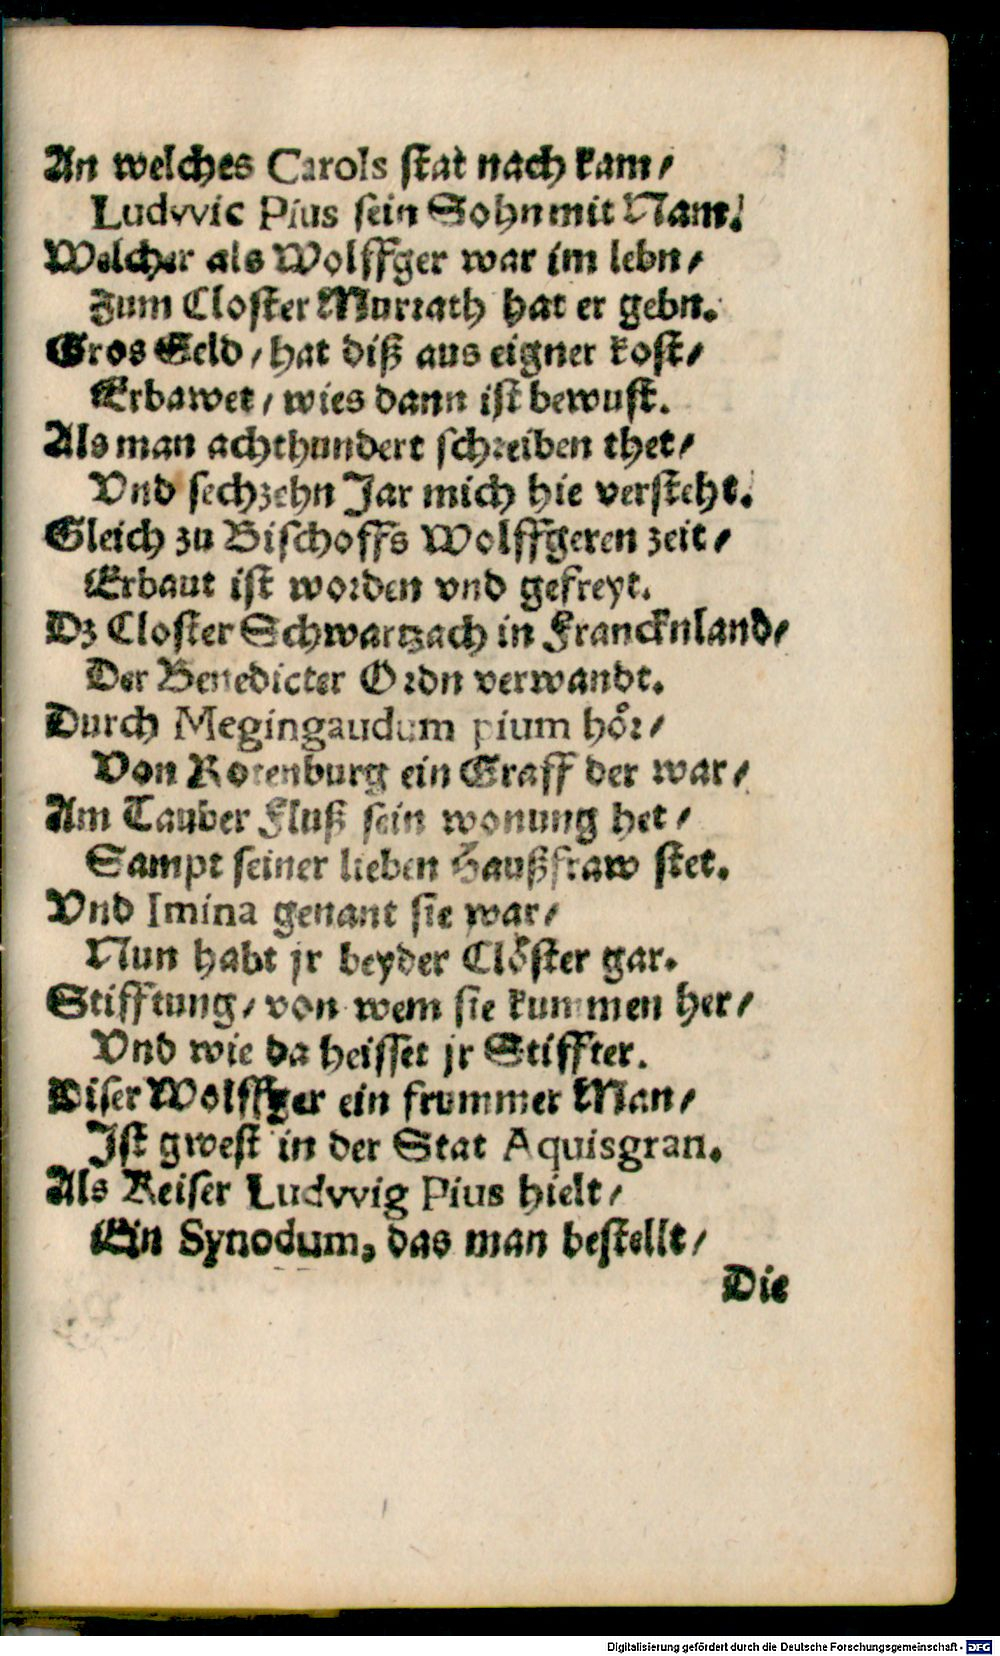 An welches Carols stat nach kam /
Ludvvic Pius sein Sohn mit Nam.
Welcher als Wolffger war im lebn /
Zum Closter Murrath hat er gebn.
Gros Geld / hat diß aus eigner kost /
Erbawet / wies dann ist bewust.
Als man achthundert schreiben thet /
Vnd sechzehn Jar mich hie versteht.
Gleich zu Bischoffs Wolffgeren zeit /
Erbaut ist worden vnd gefreyt.
Dz Closter Schwartzach in Francknland /
Der Benedicter Ordn verwandt.
Durch Megingaudum pium hör /
Von Rotenburg ein Graff der war /
Am Tauber Fluß sein wonung het /
Sampt seiner lieben Haußfraw stet.
Vnd Imina genant sie war /
Nun habt jr beyder Clöster gar.
Stifftung / von wem sie kummen her /
Vnd wie da heisset jr Stiffter.
Diser Wolffger ein frummer Man /
Jst gwest in der Stat Aquisgran.
Als Keiser Ludvvig Pius hielt /
Ein Synodum, das man bestellt /
Die
Digitalisierung gefördert durch die Deutsche Forschungsgemeinschaft - DFG